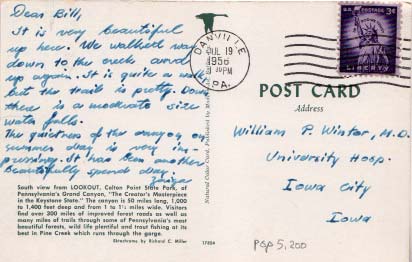 Dear Bill,
It is very beautiful
up here. We walked way
down to the creek and
up again. It is quite a walk
but the trail is pretty. Down
there is a moderate size
water falls.
The quietness of the canyon on
summer day is very im-
pressing. It has been another
beautifully spend day.
South view from LOOKOUT, Colton Point State Park, of
Pennsylvania's Grand Canyon, "The Creator's Masterpiece
in the Keystone State." The canyon is 50 miles long, 1,000
to 1,400 feet deep and from 1 to 1½ miles wide. Visitors
find over 300 miles of improved forest roads as well as
many miles of trails through some of Pennsylvania's most
beautiful forests, wild life plentiful and trout fishing at its
best in Pine Creek which runs through the gorge.
Ektachrome by Richard C. Miller
Natural Color Card, Published by
DANVILLE
JUL 19
1956
PM
PA.
U.S. POSTAGE
3¢
LIBERTY
POST CARD
Address
William P. Winter, M.D.
University Hosp.
Iowa City
Iowa
PGP 5,200